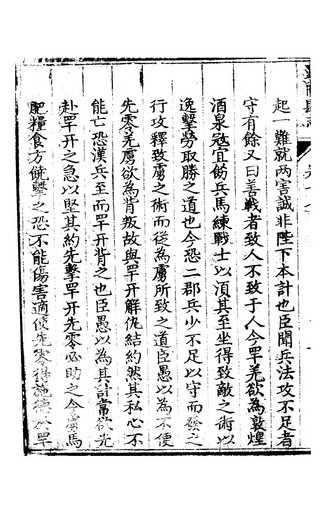 起一難就兩害誠非陛下本計也臣聞兵法攻不足者
守有餘又曰善戰者致人不致于人今罕羌欲為敦煌
酒泉寇宜飭兵馬練戰士以湏其至坐得致敵之術以
逸擊勞取勝之道也今恐二郡兵少不足以守而發之
行攻釋致虜之術而從為虜所致之道臣愚以為不便
先零羌虜欲為背叛故與罕开解仇結約然其私心不
能亡恐漢兵至而罕开背之也臣愚以為其計常欲先
赴罕开之急以堅其約先擊罕开先零必助之今虜馬
肥糧食方饒擊之恐不能傷害適使先零得施德於罕